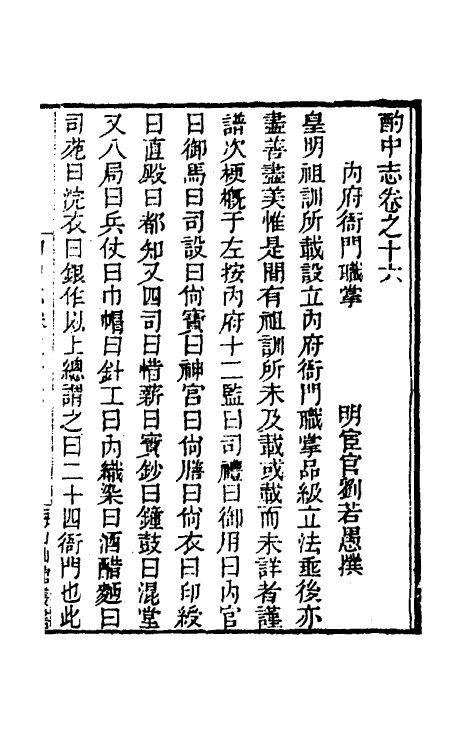 酌中志卷之十六
內府衙門職掌　　　明宦官劉若愚撰
皇明祖訓所載設立內府衙門職掌品級立法垂後亦
盡善盡美惟是間有祖訓所未及載或載而未詳者謹
譜次梗概于左按內府十二監曰司禮曰御用曰內官
曰御馬曰司設曰尙寶曰神宮曰尙膳曰尙衣曰印綬
曰直殿曰都知又四司曰惜薪曰寶鈔曰鐘鼓曰混堂
又八局曰兵仗曰巾帽曰針工曰內織染曰酒醋麵曰
司苑曰浣衣曰銀作以上總謂之曰二十四衙門也此